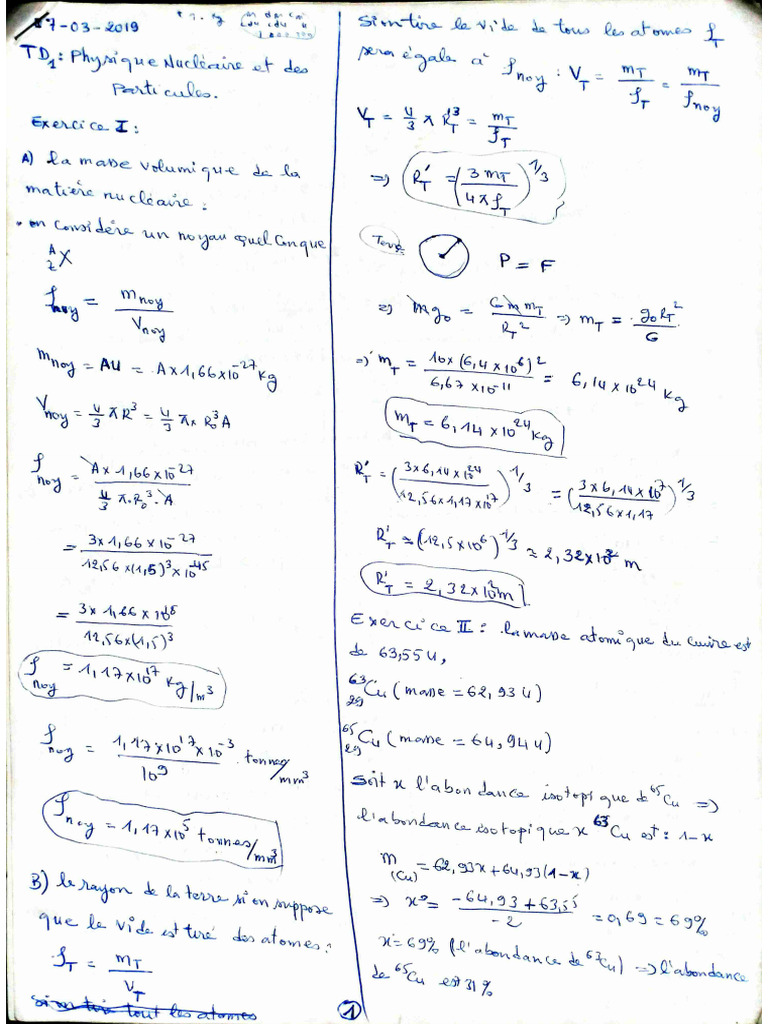 27-03-2019
TD1 : Physique Nucléaire et des
Particules.
Exercice I :
A) la masse volumique de la
matière nucléaire :
• on considère un noyau quel conque
A/Z X
ρnoy = mnoy / Vnoy
mnoy = AU = A × 1,66×10^-27 kg
Vnoy = 4/3 π R^3 = 4/3 π × R0^3 A
ρnoy = A × 1,66×10^-27 / 4/3 π . R0^3 . A
= 3×1,66×10^-27 / 12,56×(1,5)^3 × 10^-45
= 3×1,66×10^18 / 12,56×(1,5)^3
ρnoy = 1,17×10^17 kg/m^3
ρnoy = 1,17×10^17 × 10^-3 / 10^9 . tonnes/mm^3
ρnoy = 1,17×10^5 tonnes/mm^3
B) le rayon de la terre si on suppose
que le vide est tiré des atomes :
ρT = mT / VT
si on tire tout les atomes
Si on tire le vide de tous les atomes ρT
sera égale à ρnoy : VT = mT / ρT = mT / ρnoy
VT = 4/3 π R'T^3 = mT / ρT
=> R'T = (3 mT / 4πρT)^1/3
Terre P = F
=> m g0 = G m mT / RT^2 => mT = g0 RT^2 / G
=> mT = 10×(6,4×10^6)^2 / 6,67×10^-11 = 6,14×10^24 kg
mT = 6,14×10^24 kg
R'T = (3×6,14×10^24 / 12,56×1,17×10^17)^1/3 = (3×6,14×10^7 / 12,56×1,17)^1/3
R'T ≈ (12,5×10^6)^1/3 ≈ 2,32×10^2 m
R'T = 2,32×10^2 m
Exercice II : la masse atomique du cuivre est
de 63,55 u,
63/29 Cu (masse = 62,93 u)
65/29 Cu (masse = 64,94 u)
Soit x l'abondance isotopique de 65Cu =>
l'abondance isotopique x 63Cu est : 1-x
m(Cu) = 62,93x + 64,93(1-x)
=> x = -64,93 + 63,55 / -2 = 0,69 = 69%
x = 69% (l'abondance de 63Cu) => l'abondance
de 65Cu est 31%
1